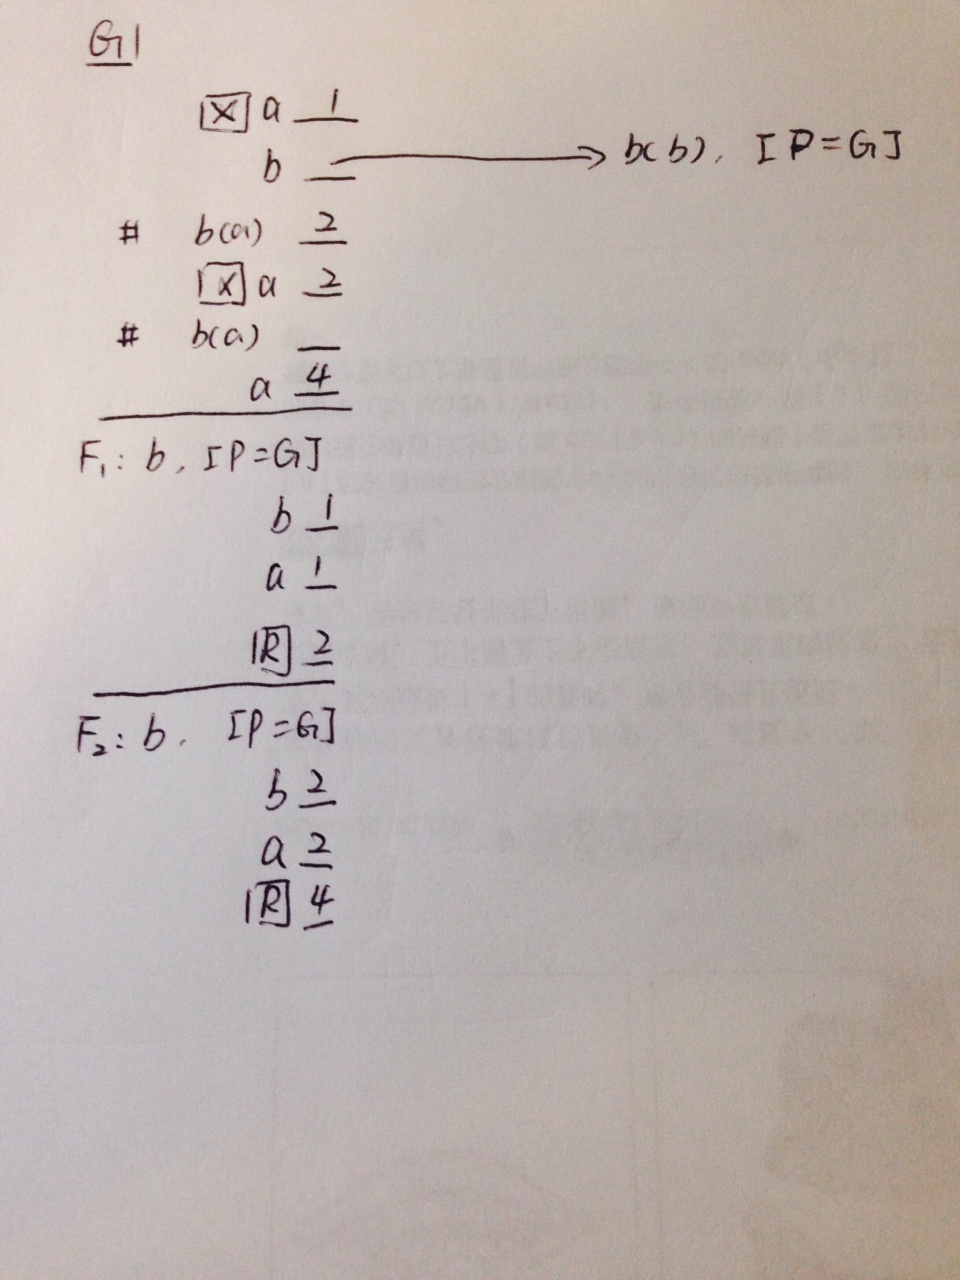 G1
[X] a 1
b → b(b), [P=G]
# b(a) 2
[X] a 2
# b(a) _
a 4
F₁: b, [P=G]
b 1
a 1
[R] 2
F₂: b, [P=G]
b 2
a 2
[R] 4